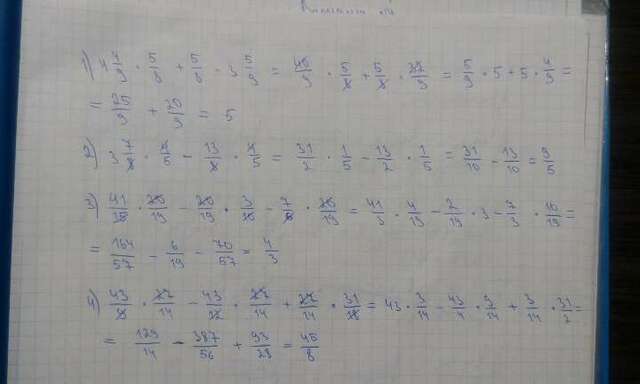 1) 4 4/9 · 5/8 + 5/8 · 3 5/9 = 40/9 · 5/8 + 5/8 · 32/9 = 5/9 · 5 + 5 · 4/9 =
= 25/9 + 20/9 = 5
2) 3 7/8 · 4/5 - 13/8 · 4/5 = 31/2 · 1/5 - 13/2 · 1/5 = 31/10 - 13/10 = 9/5
3) 41/15 · 20/19 - 20/19 · 3/10 - 7/6 · 20/19 = 41/3 · 4/19 - 2/19 · 3 - 7/3 · 10/19 =
= 164/57 - 6/19 - 70/57 = 4/3
4) 43/9 · 27/14 - 43/12 · 27/14 + 27/14 · 31/18 = 43 · 3/14 - 43/4 · 9/14 + 3/14 · 31/2 =
= 129/14 - 387/56 + 93/28 = 45/8